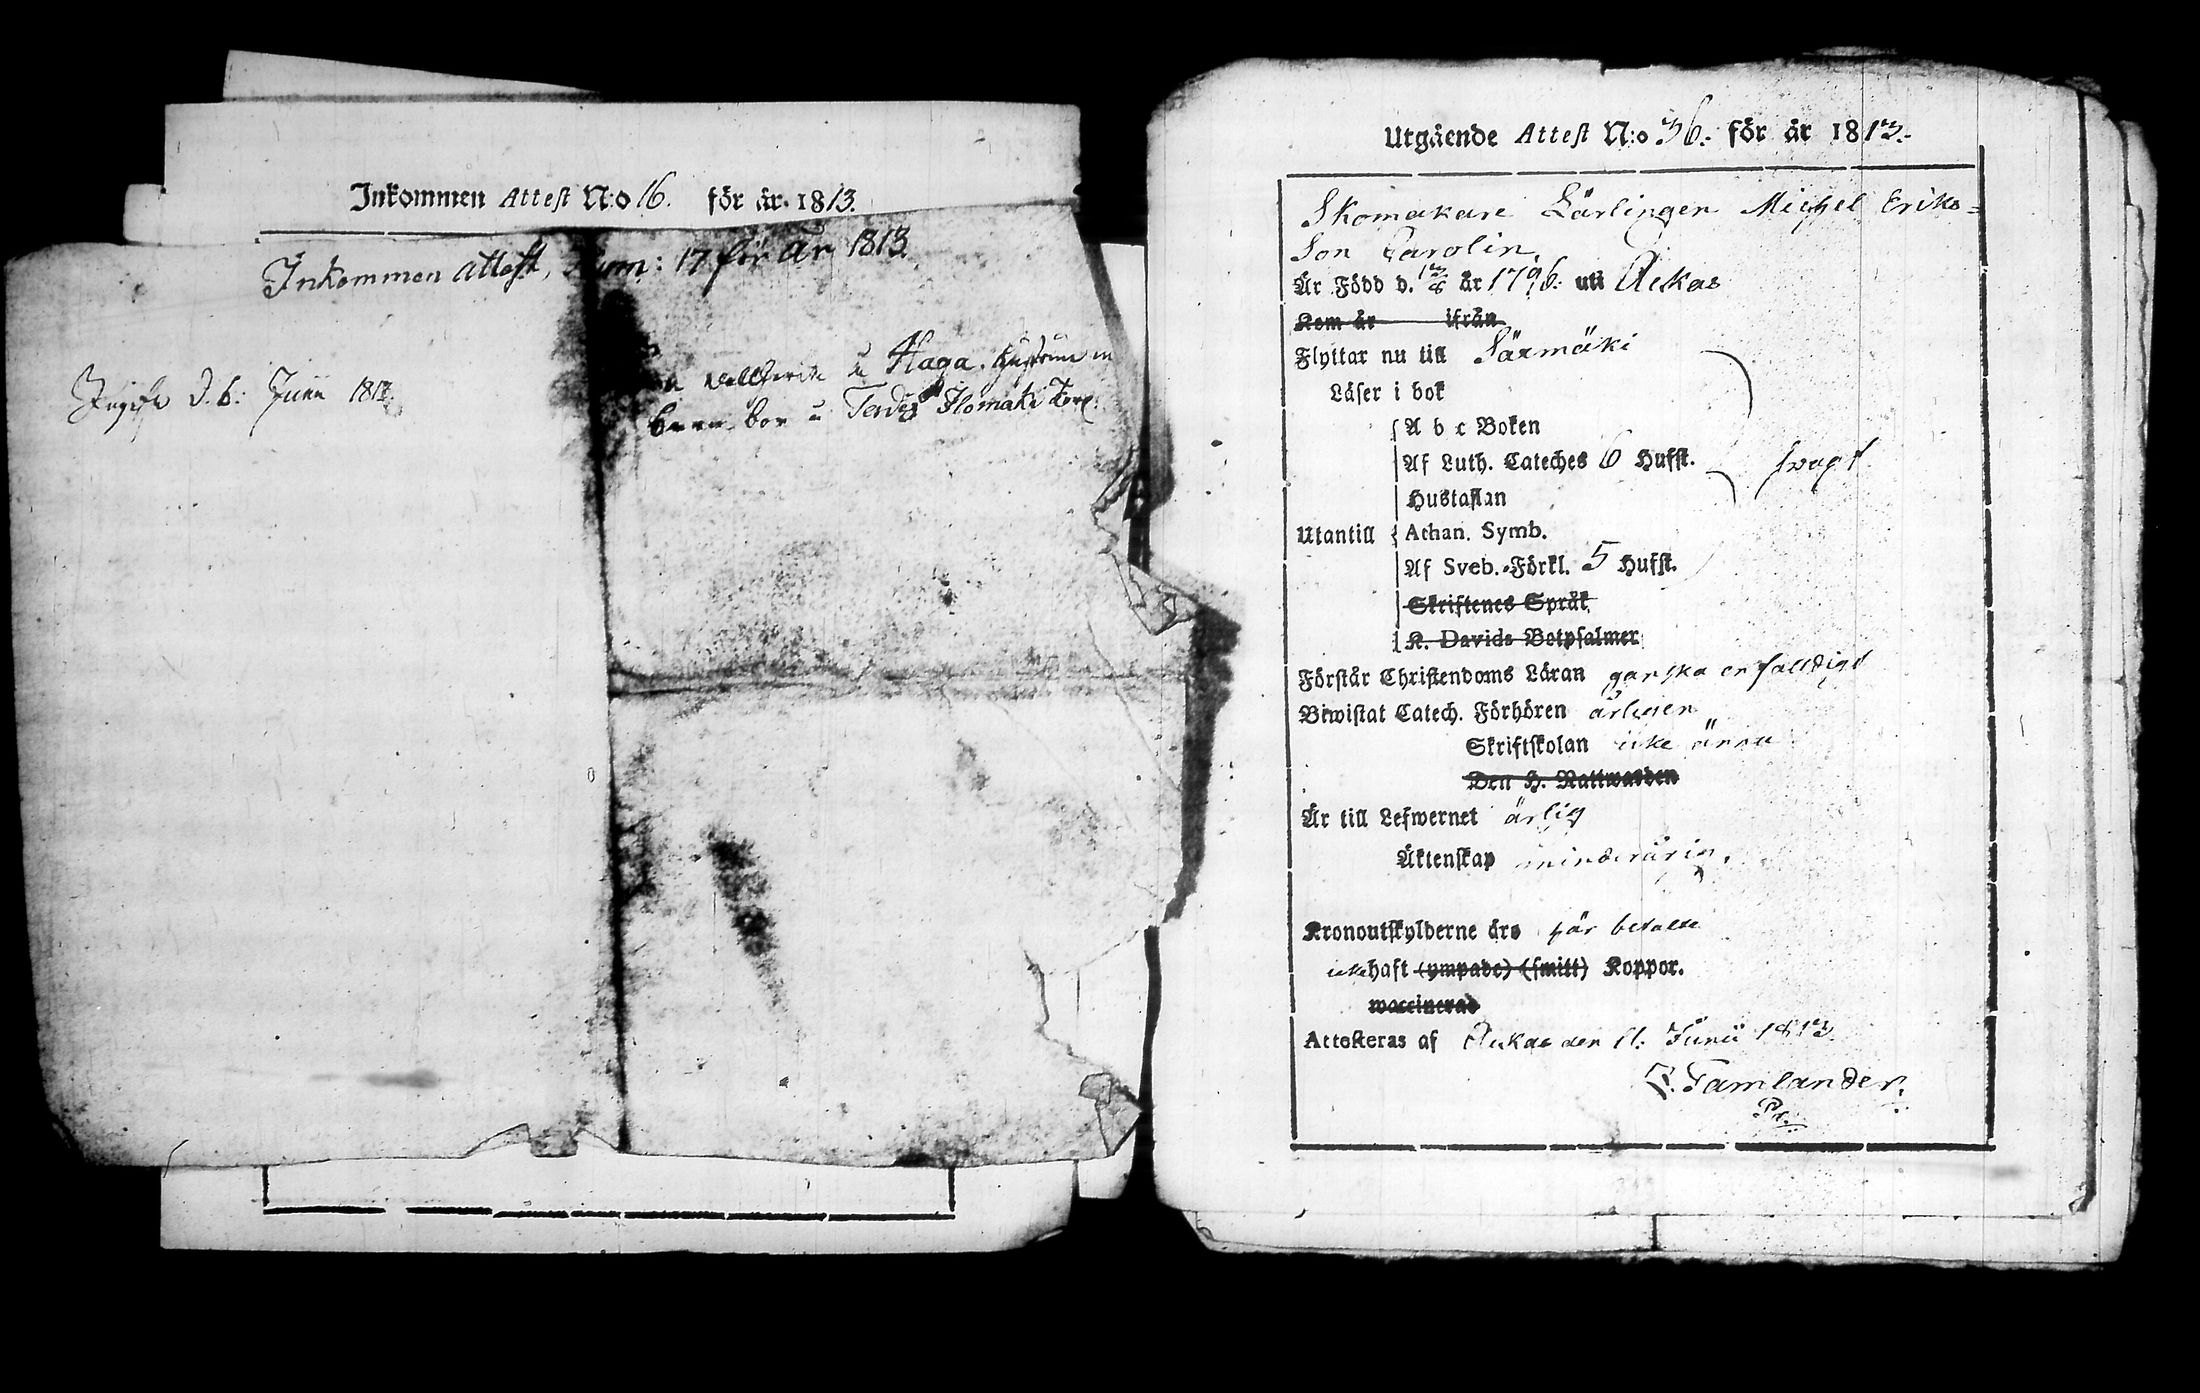 Inkommen Attest N:o 16. för år 1813.
Inkommen Attest, Num: 17 för år 1813
Ingifv. d. 6. Junii 1813.
u Haga. Hustrun m
barn bor u Ilomäki Torp.
Utgående Attest N:o 36. för år 1813.
Skomakare Lärlingen Michel Eriks=
son Carolin,
Är Född d. 13/8 år 1796. uti Uckas
Kom år ifrån
Flyttar nu till Särmäki
Läser i bok
A b c Boken
Af Luth. Cateches 6 Hufst. svagt
Hustaflan
Utantill Athan. Symb.
Af Sveb. Förkl. 5 Hufst.
Skriftenes Språk
K. Davids Botpsalmer
Förstår Christendoms Läran ganska enfaldigt
Biwistat Catech. Förhören årligen
Skriftskolan icke ännu
Den H. Nattwarden
Är till Lefwernet ärlig
Äktenskap minderårig.
Kronoutskylderne äro här betalte
icke haft (ympade) (smitt) Koppor.
waccinerad
Attesteras af den 11. Junii 1813.
Famlander.
Pr.